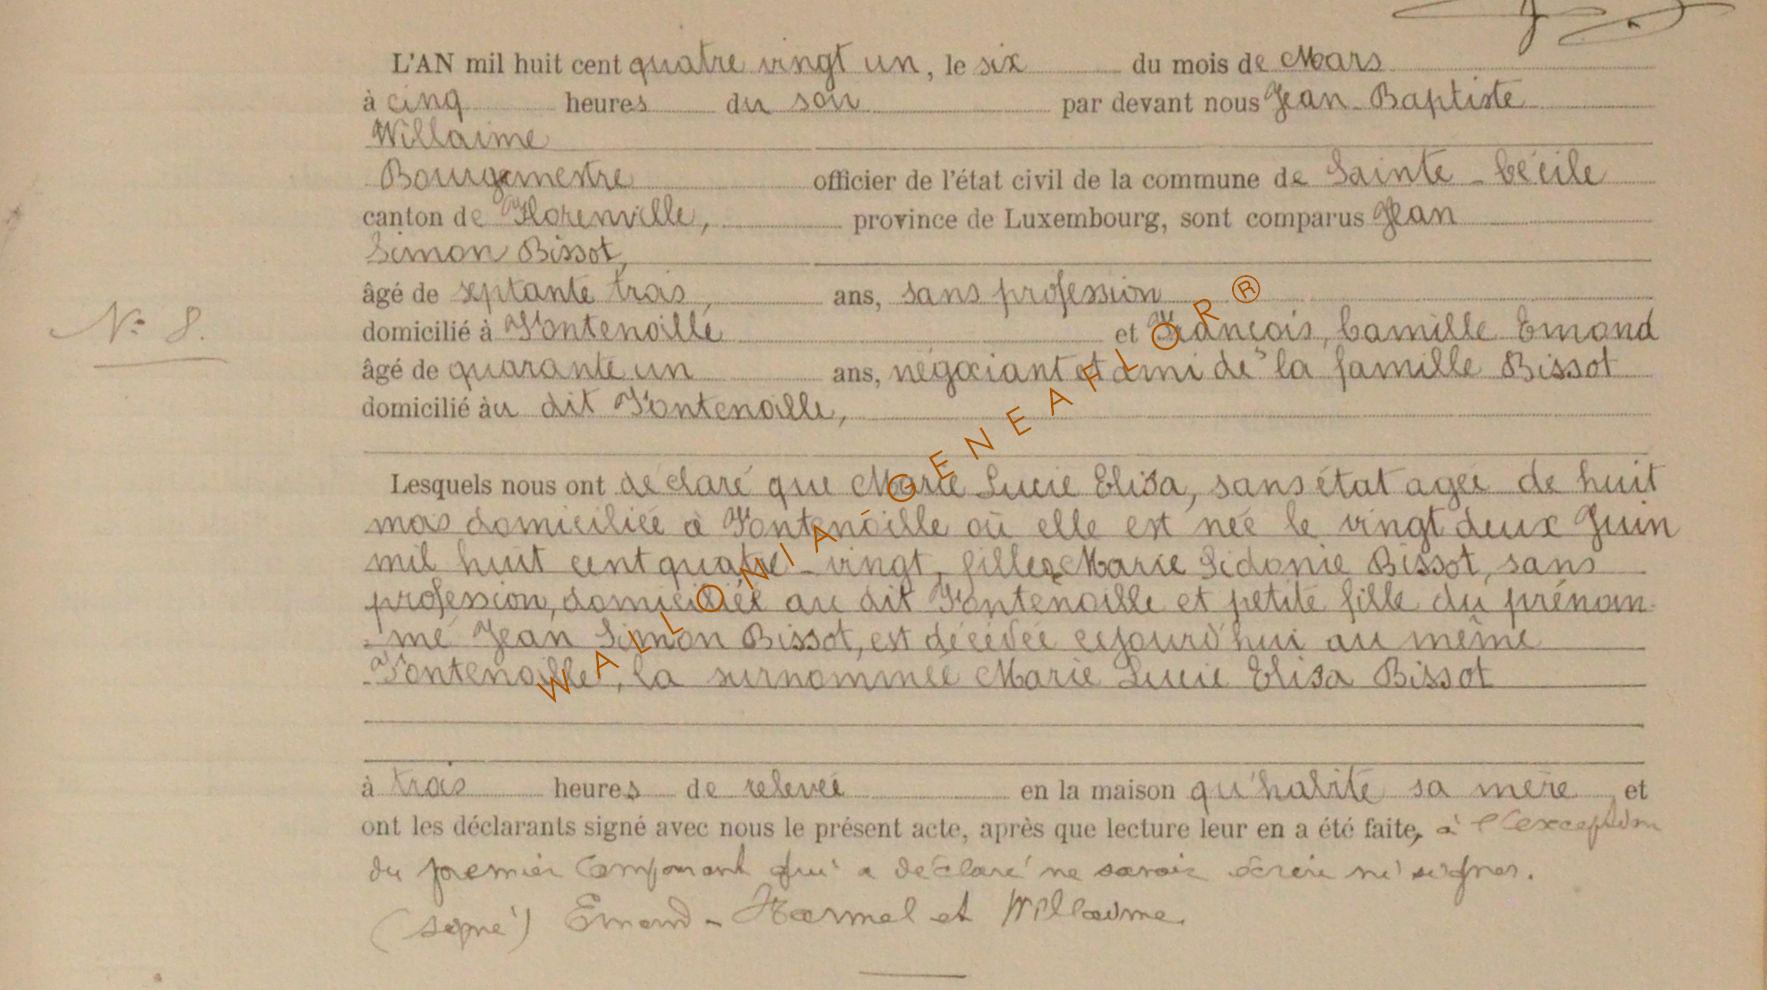 L'AN mil huit cent quatre vingt un, le six du mois de Mars
à cinq heures du soir par devant nous Jean Baptiste
Willaime
Bourgmestre officier de l'état civil de la commune de Sainte-Cécile
canton de Florenville, province de Luxembourg, sont comparus Jean
Simon Bissot,
âgé de septante trois ans, sans profession
N° 8.
domicilié à Fontenoille et François, Camille Emond
âgé de quarante un ans, négociant et ami de la famille Bissot
domicilié au dit Fontenoille,
Lesquels nous ont déclaré que Marie Lucie Elisa, sans état agée de huit
mois domiciliée à Fontenoille où elle est née le vingt deux Juin
mil huit cent quatre-vingt, fille de Marie Sidonie Bissot, sans
profession, domiciliée au dit Fontenoille et petite fille du prénom-
mé Jean Simon Bissot, est décédée cejourd'hui au même
Fontenoille, la surnommée Marie Lucie Elisa Bissot
à trois heures de relevée en la maison qu'habite sa mère et
ont les déclarants signé avec nous le présent acte, après que lecture leur en a été faite, à l'exception
du premier comparant qui a déclaré ne savoir écrire ni signer.
(signé) Emond-Harmel et Willaime.
WALLONIA-GENEAFLOR®